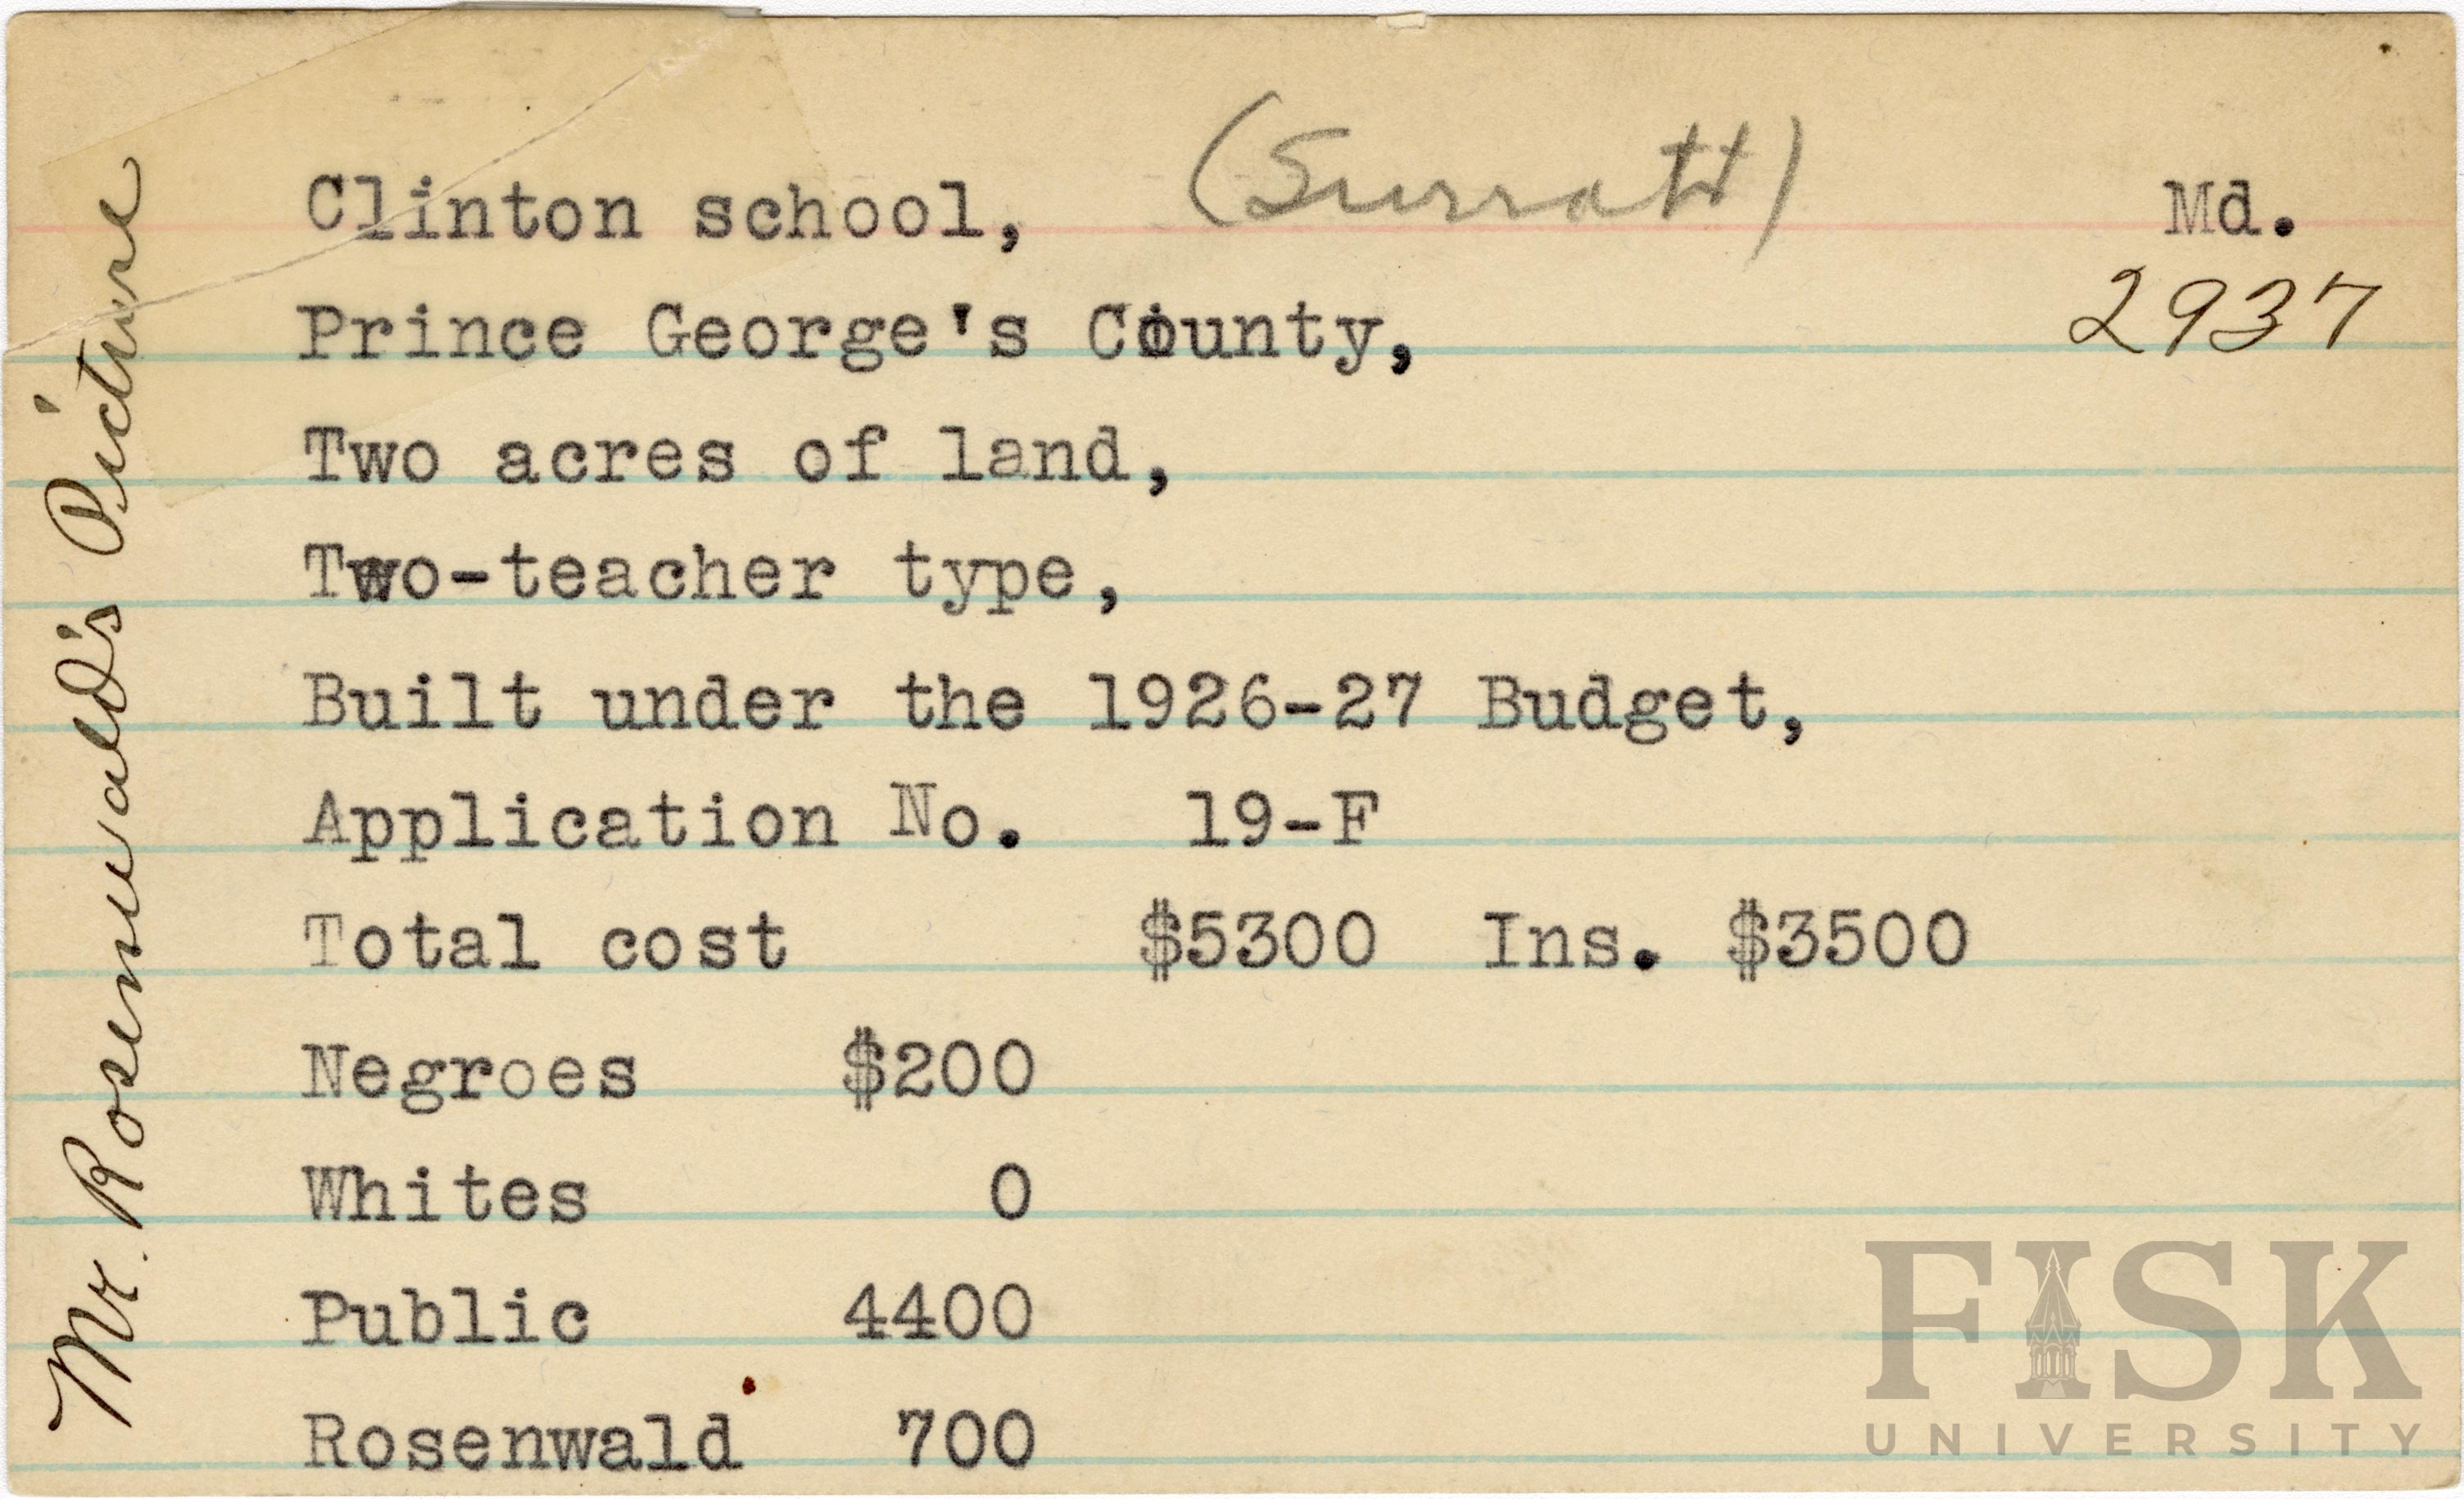 Clinton school, (Surratt) Md.
2937
Prince George's County,
Two acres of land,
Two-teacher type,
Built under the 1926-27 Budget,
Application No. 19-F
Total cost $5300 Ins. $3500
Negroes $200
Whites 0
Public 4400
Rosenwald 700
Mr. Rosenwald's Picture
FISK
UNIVERSITY